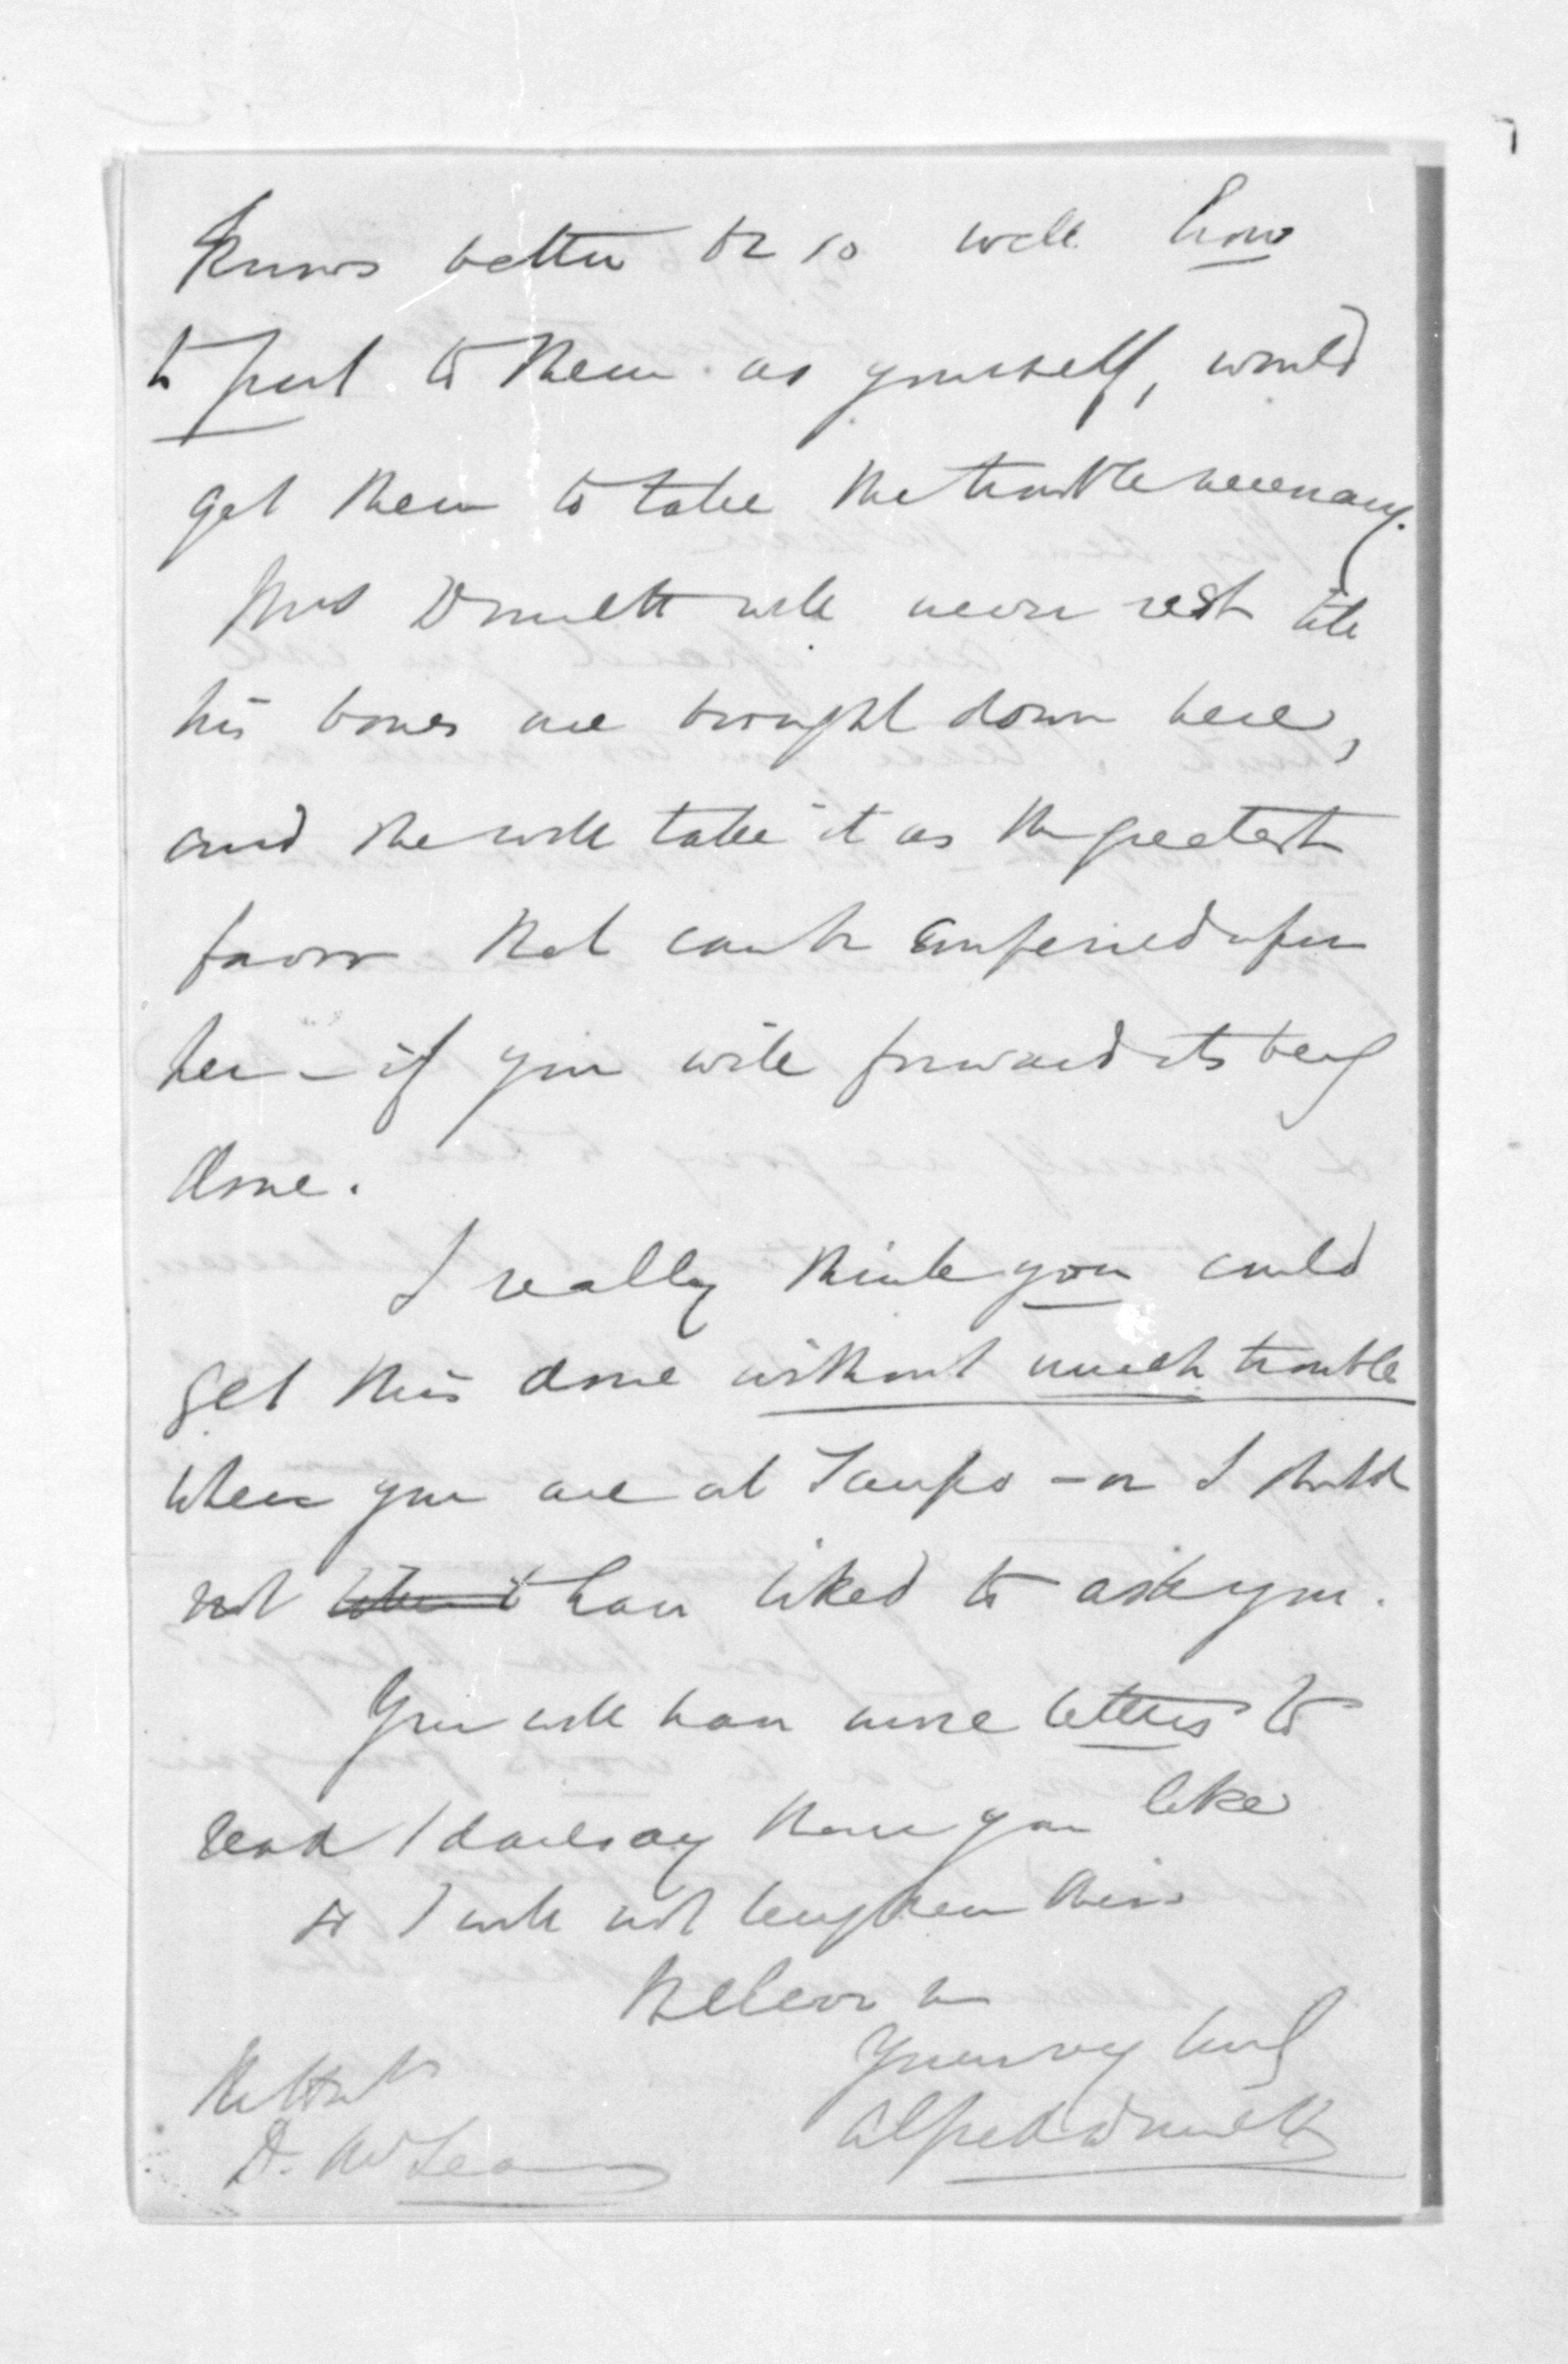 knows better or so well how
to put to them as yourself, would
get them to take the trouble necessary.
Mrs Domett will never rest till
his bones are brought down here,
and she will take it as the greatest
favor that can be conferred upon
her - if you will forward its being
done.
I really think you could
get this done without much trouble
when you are at Taupo - or I should
not have liked to ask you.
You will have more letters to
read I daresay than you like
so I will not lengthen this
Believe me
Yours very truly
Alfred Domett
D. McLean